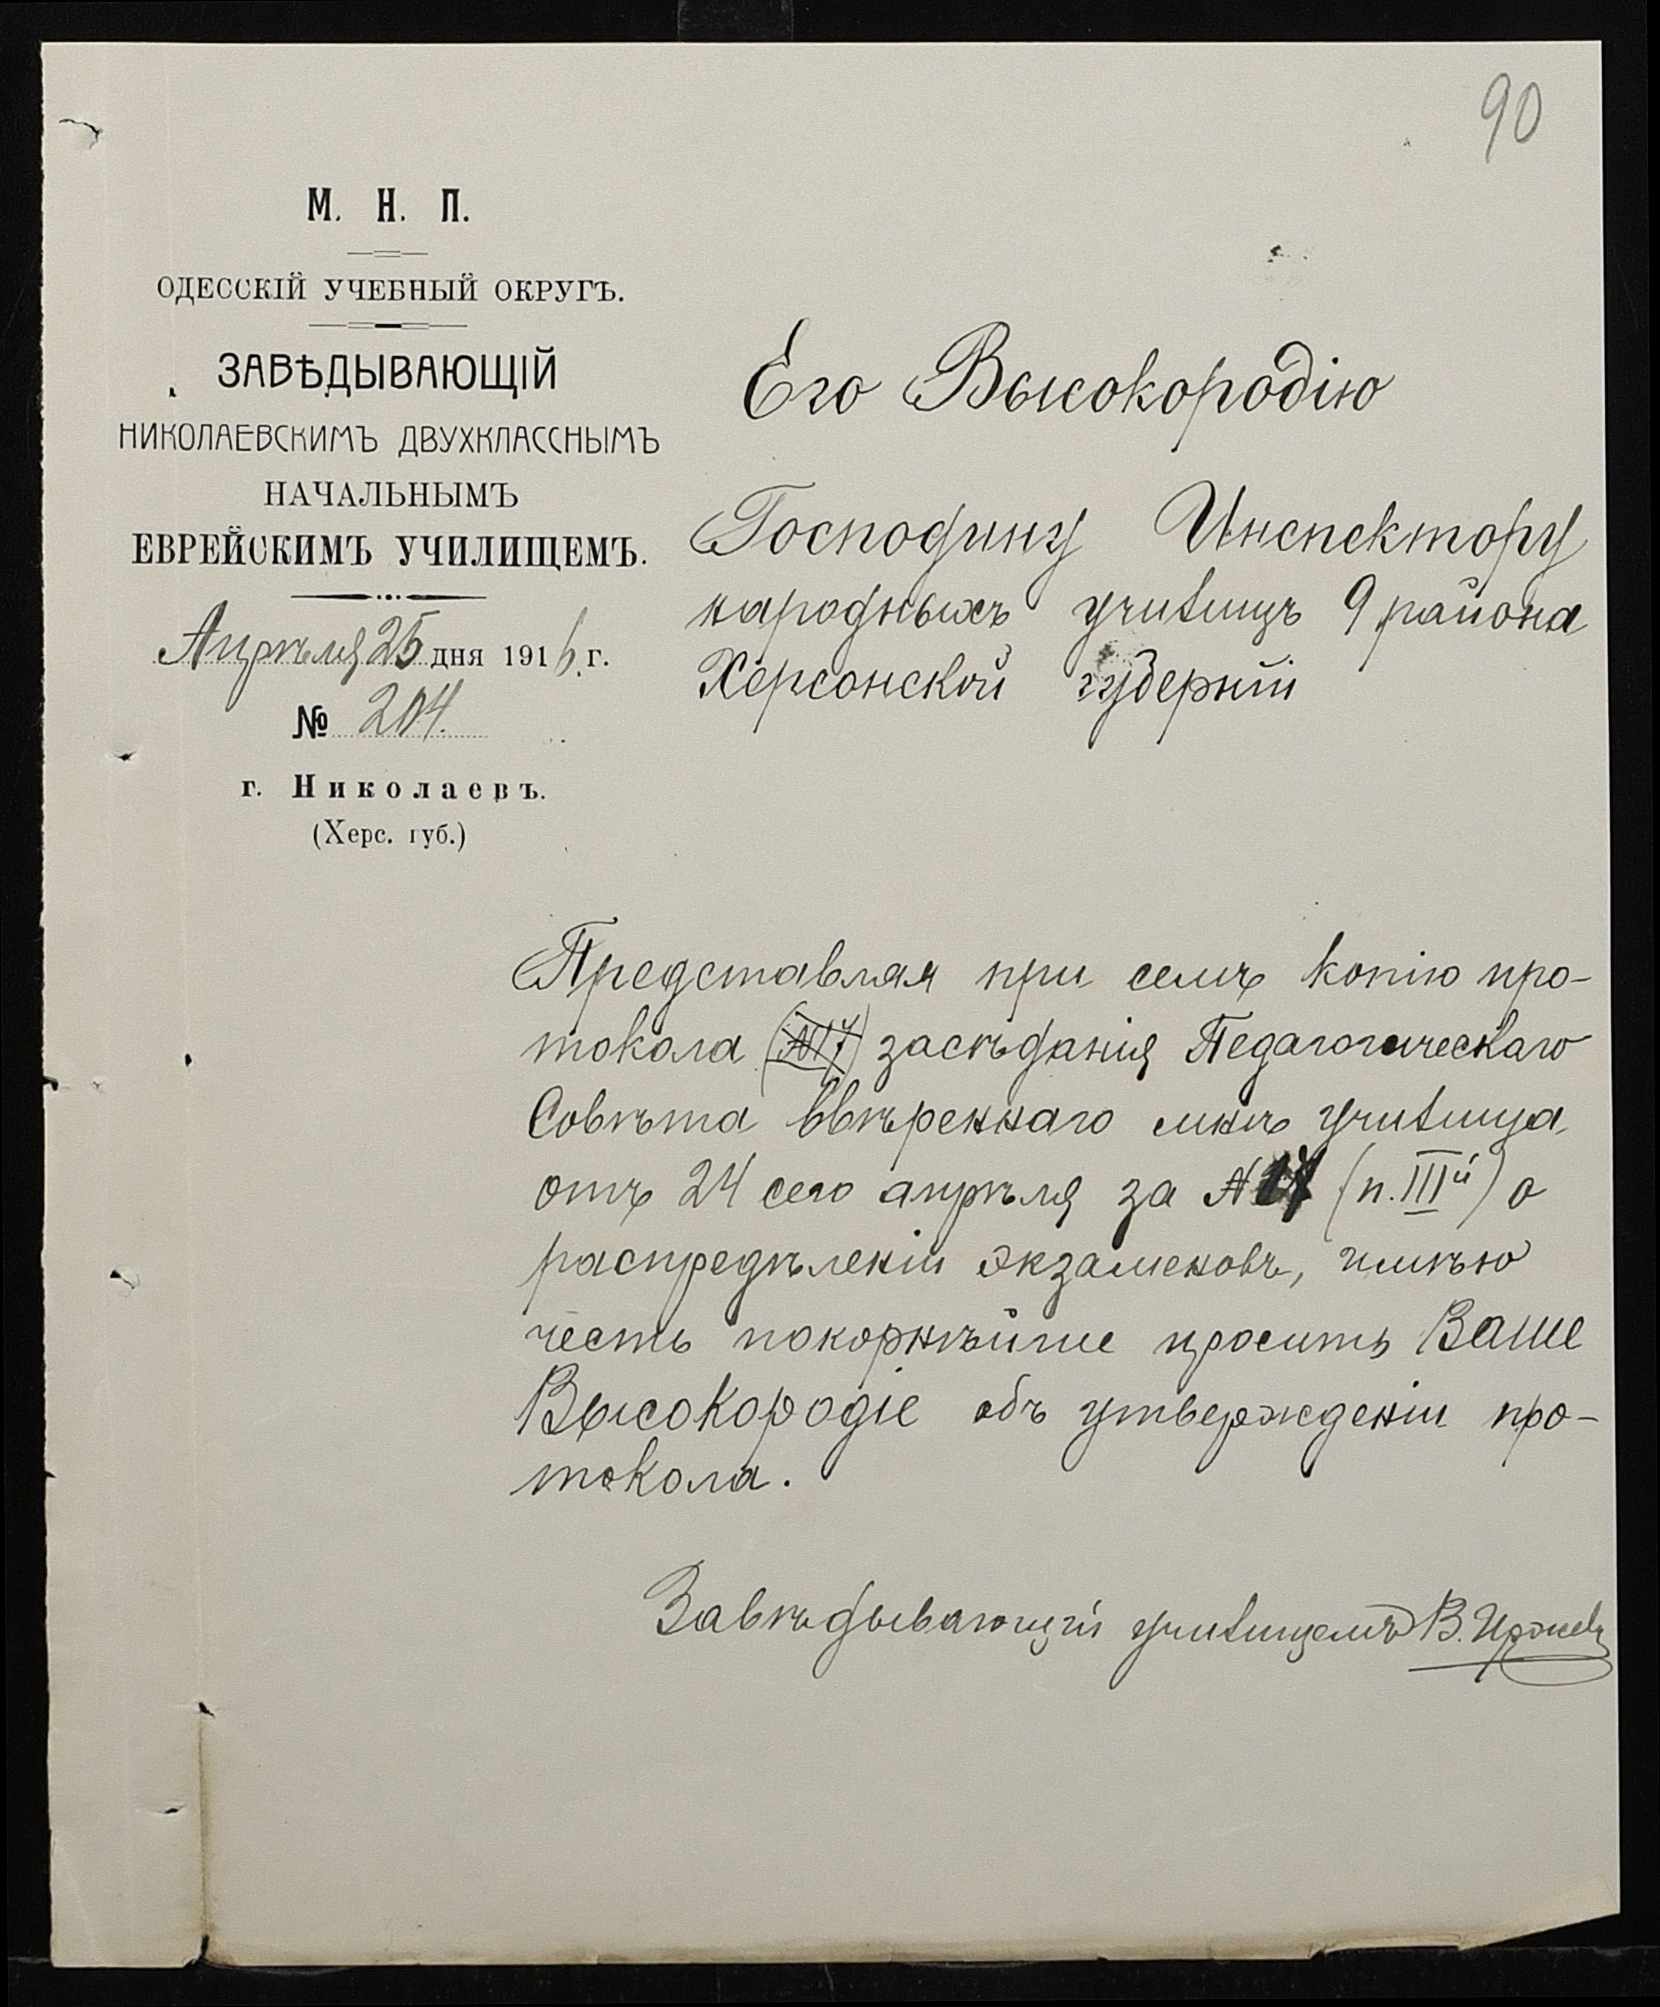 90
М. Н. П.
ОДЕССКІЙ УЧЕБНЫЙ ОКРУГЪ.
ЗАВѢДЫВАЮЩІЙ
НИКОЛАЕВСКИМЪ ДВУХКЛАССНЫМЪ
НАЧАЛЬНЫМЪ
ЕВРЕЙСКИМЪ УЧИЛИЩЕМЪ.
Апрѣля 25 дня 1916 г.
№ 204.
г. Николаевъ.
(Херс. губ.)
Его Высокородію
Господину Инспектору
народныхъ училищъ 9 района
Херсонской губерніи
Представляя при семъ копію про-
токола (№17) засѣданія Педагогическаго
Совѣта ввѣреннаго мнѣ училища
отъ 24 сего апрѣля за №17 (п. IIIй) о
распредѣленіи экзаменовъ, имѣю
честь покорнѣйше просить Ваше
Высокородіе объ утвержденіи про-
токола.
Завѣдывающій училищемъ В.